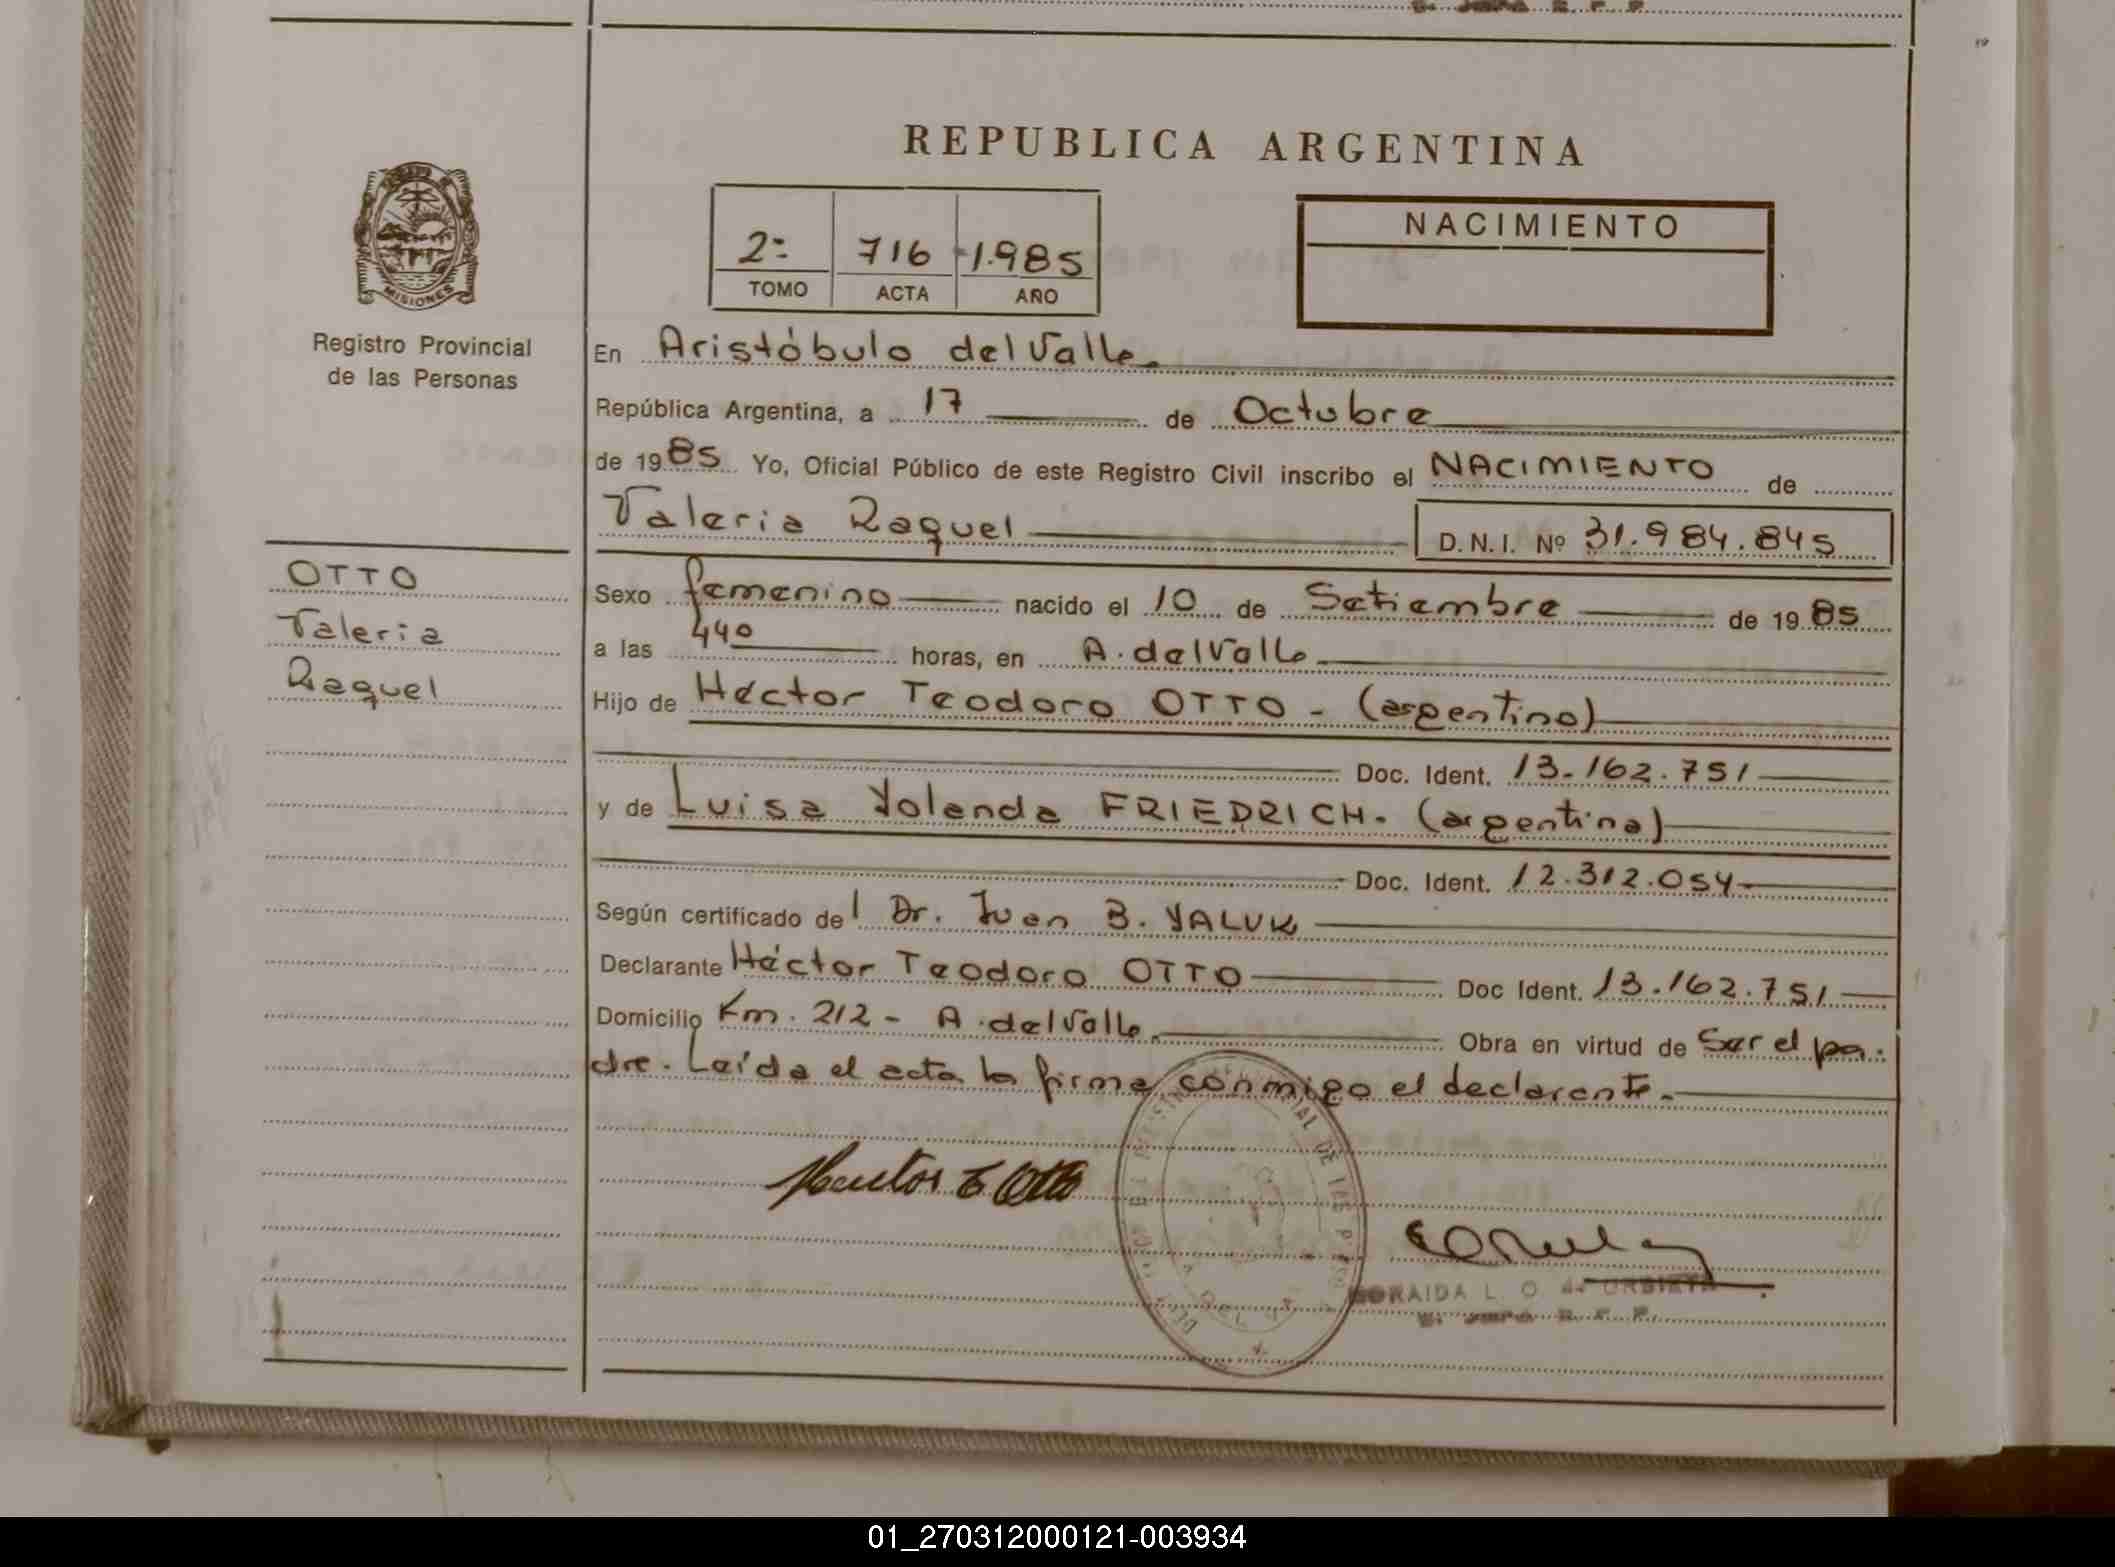 REPUBLICA ARGENTINA
2º 716 1.985
TOMO ACTA AÑO
NACIMIENTO
MISIONES
Registro Provincial
de las Personas
En Aristóbulo del Valle.
República Argentina, a 17 de Octubre
de 1985 Yo, Oficial Público de este Registro Civil inscribo el NACIMIENTO de
Valeria Raquel D.N.I. Nº 31.984.845
OTTO
Valeria
Raquel
Sexo femenino nacido el 10 de Setiembre de 1985
a las 440 horas, en A. del Valle
Hijo de Héctor Teodoro OTTO - (argentino)
Doc. Ident. 13.162.751
y de Luisa Yolanda FRIEDRICH. (argentina)
Doc. Ident. 12.312.054
Según certificado del Dr. Juan B. YALUK
Declarante Héctor Teodoro OTTO Doc Ident. 13.162.751
Domicilio Km. 212 - A. del Valle. Obra en virtud de Ser el pa-
dre. Leída el acta la firma conmigo el declarante.
Hector T Otto
DE LAS
L. O. de URBIETA
01_270312000121-003934